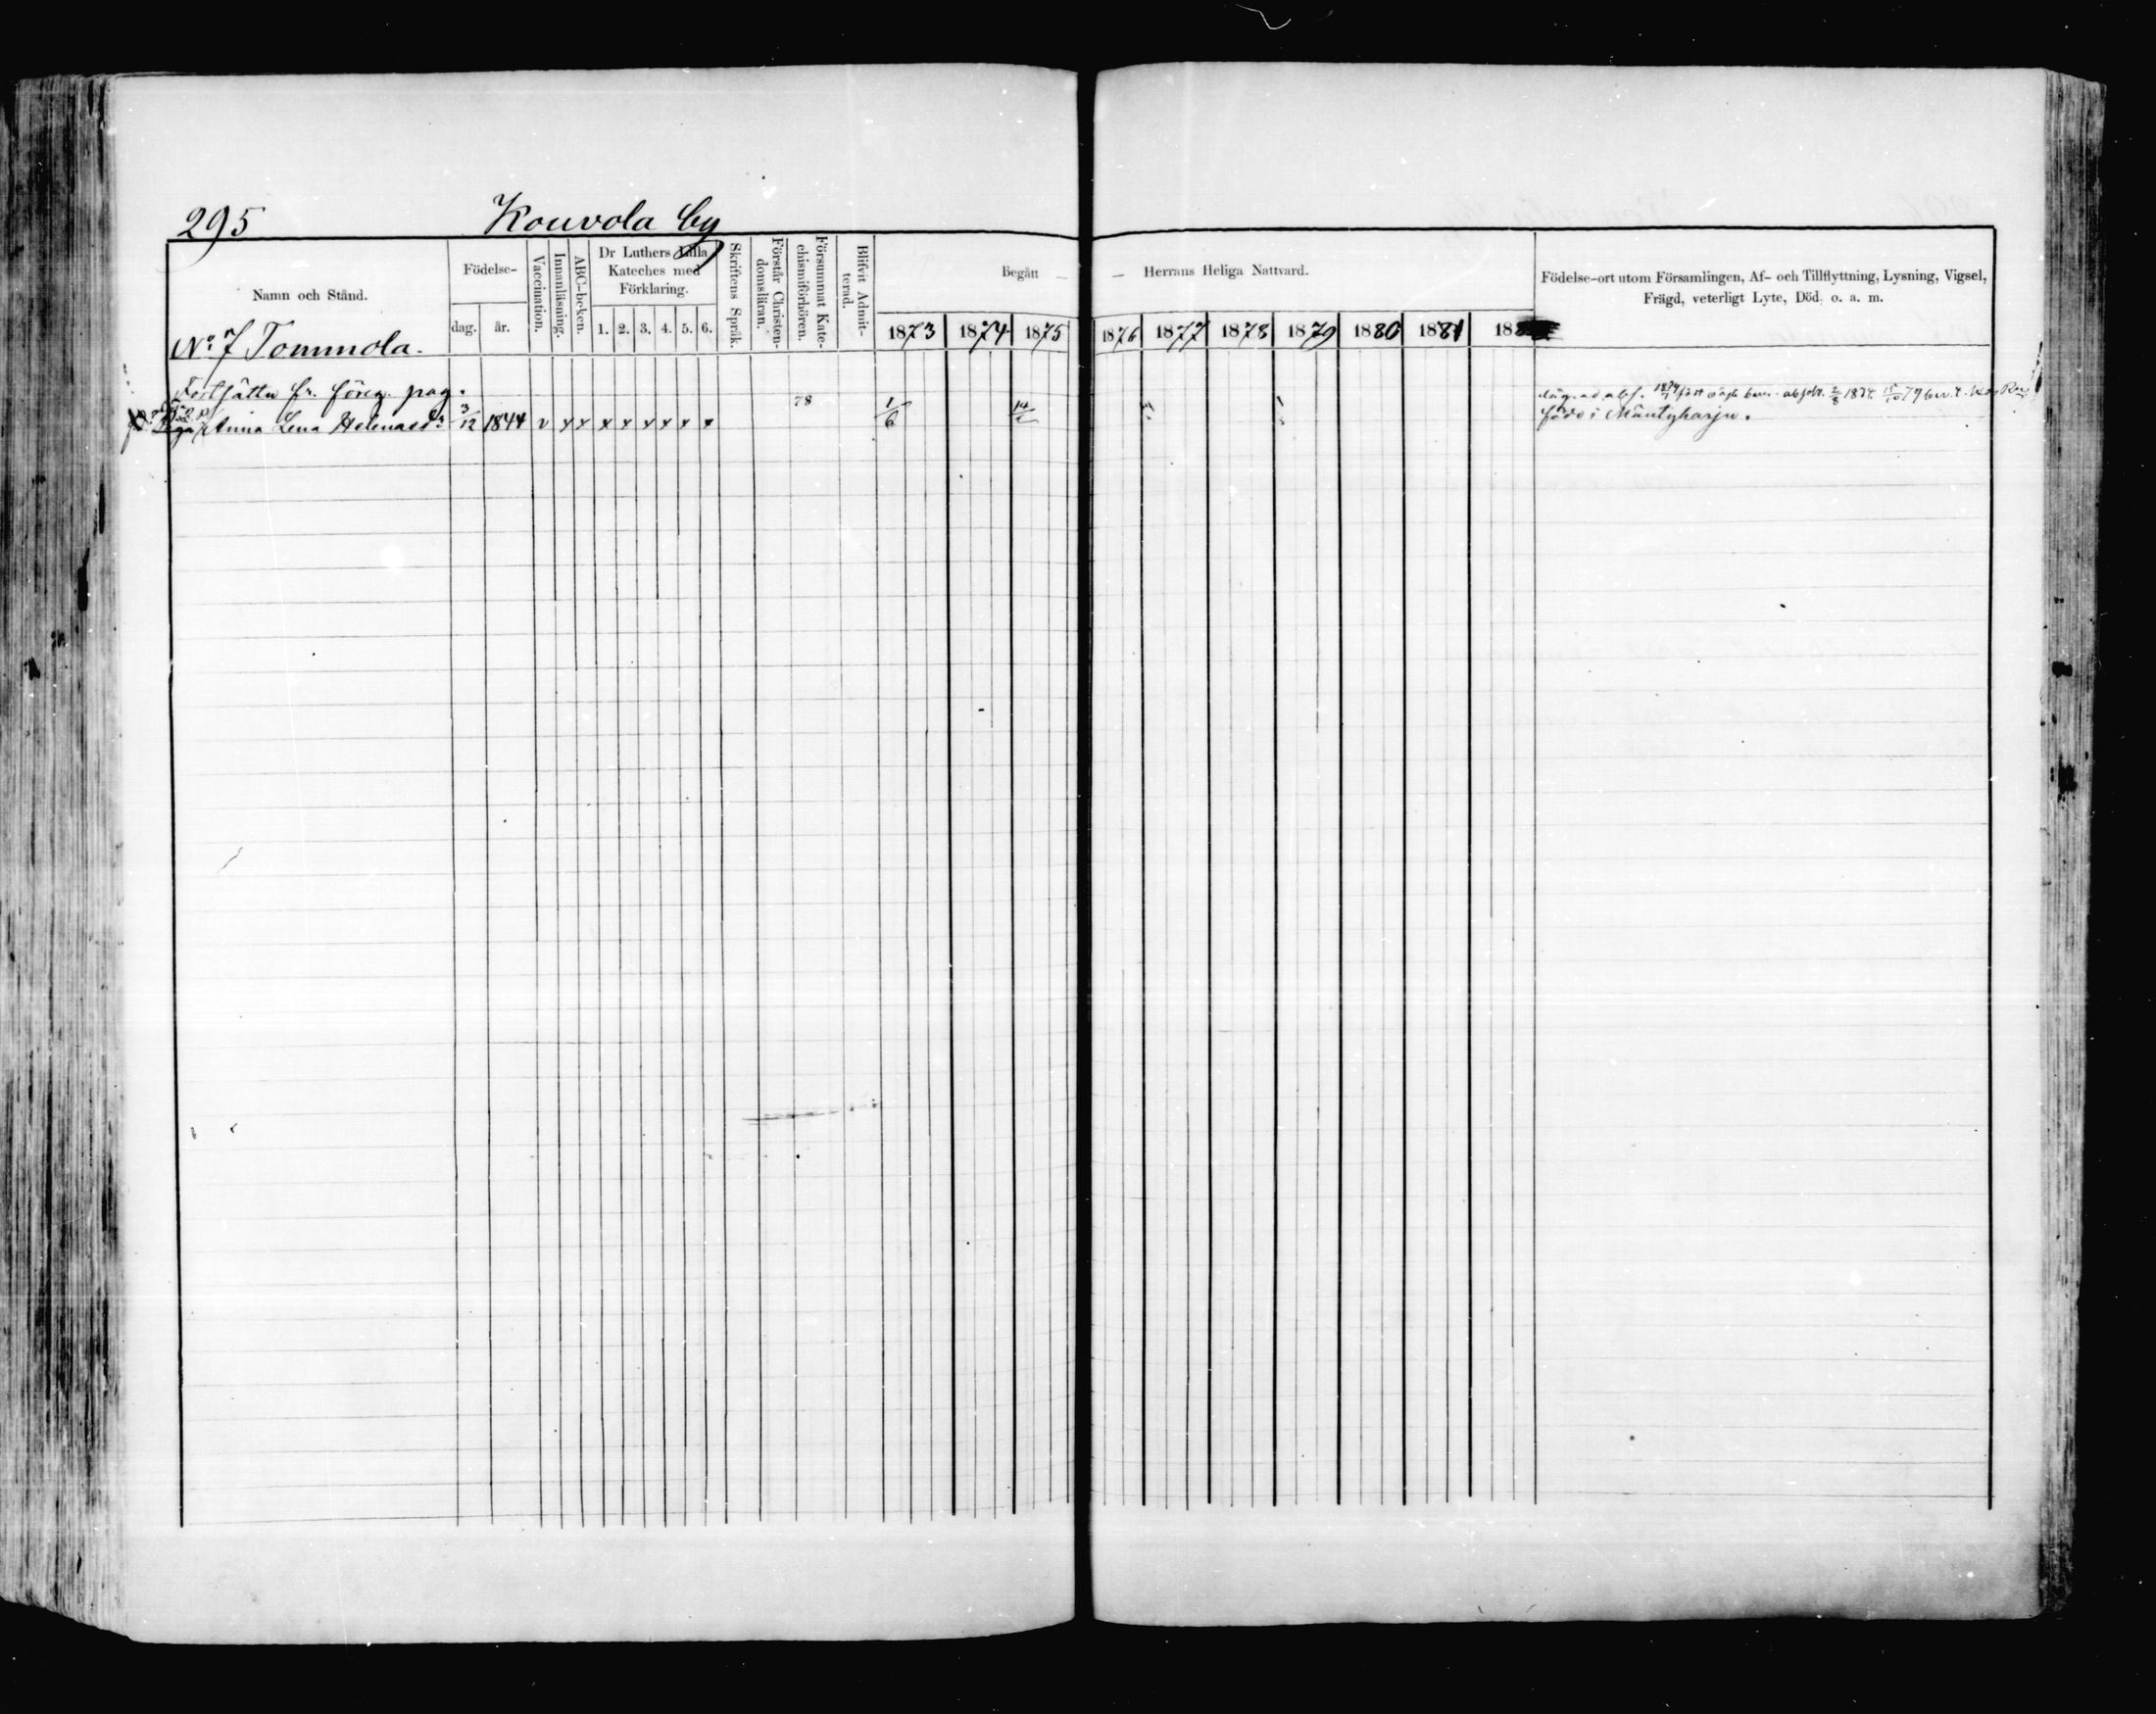 295 Kouvola by
Namn och Stånd.
Födelse-
dag. år.
Vaccination.
Innanläsning.
ABC-boken.
Dr Luthers Lilla
Kateches med
Förklaring.
1. 2. 3. 4. 5. 6.
Skriftens Språk.
Förstår Christen-
domsläran.
Försummat Kate-
chismiförhören.
Blifvit Admit-
terad.
Begått — — Herrans Heliga Nattvard.
1873 1874 1875 1876 1877 1878 1879 1880 1881 188
Födelse-ort utom Församlingen, Af- och Tillflyttning, Lysning, Vigsel,
Frägd, veterligt Lyte, Död. o. a. m.
No 7 Tommola.
Fortsättn fr. föreg. pag.
78
Anna Lena Helenasd:r 3/12 1844 v x x x x x x x x 1/6
född i Mäntyharju.